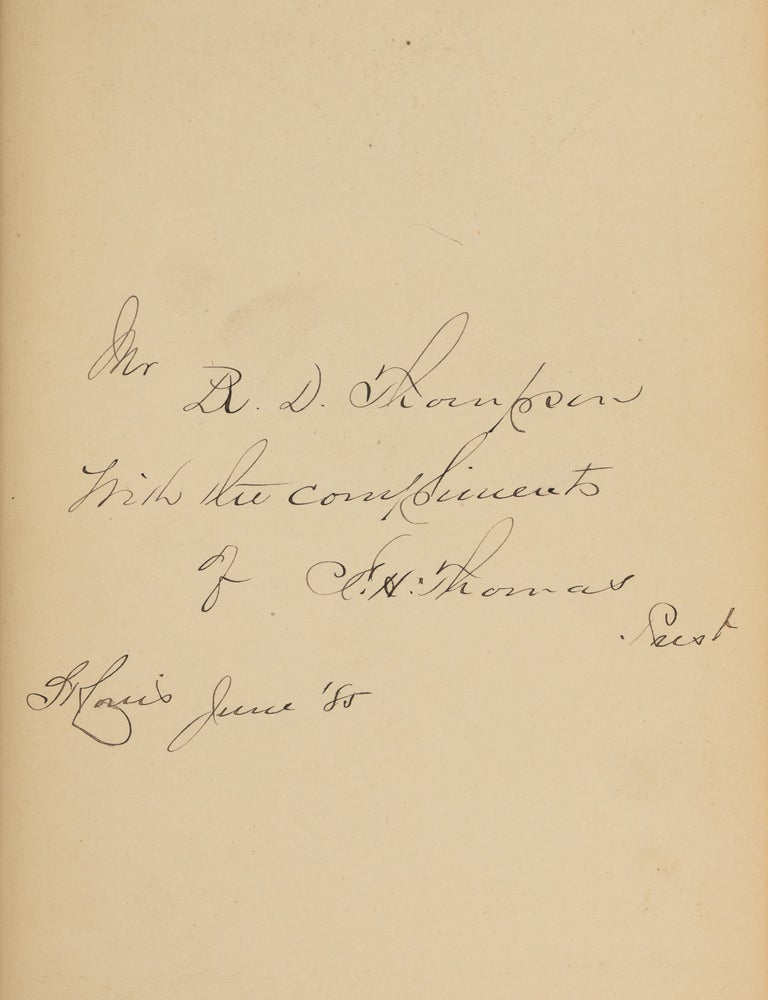 Mr R. D. Thompson
With the compliments
of F. H. Thomas
Prest
St Louis June '85